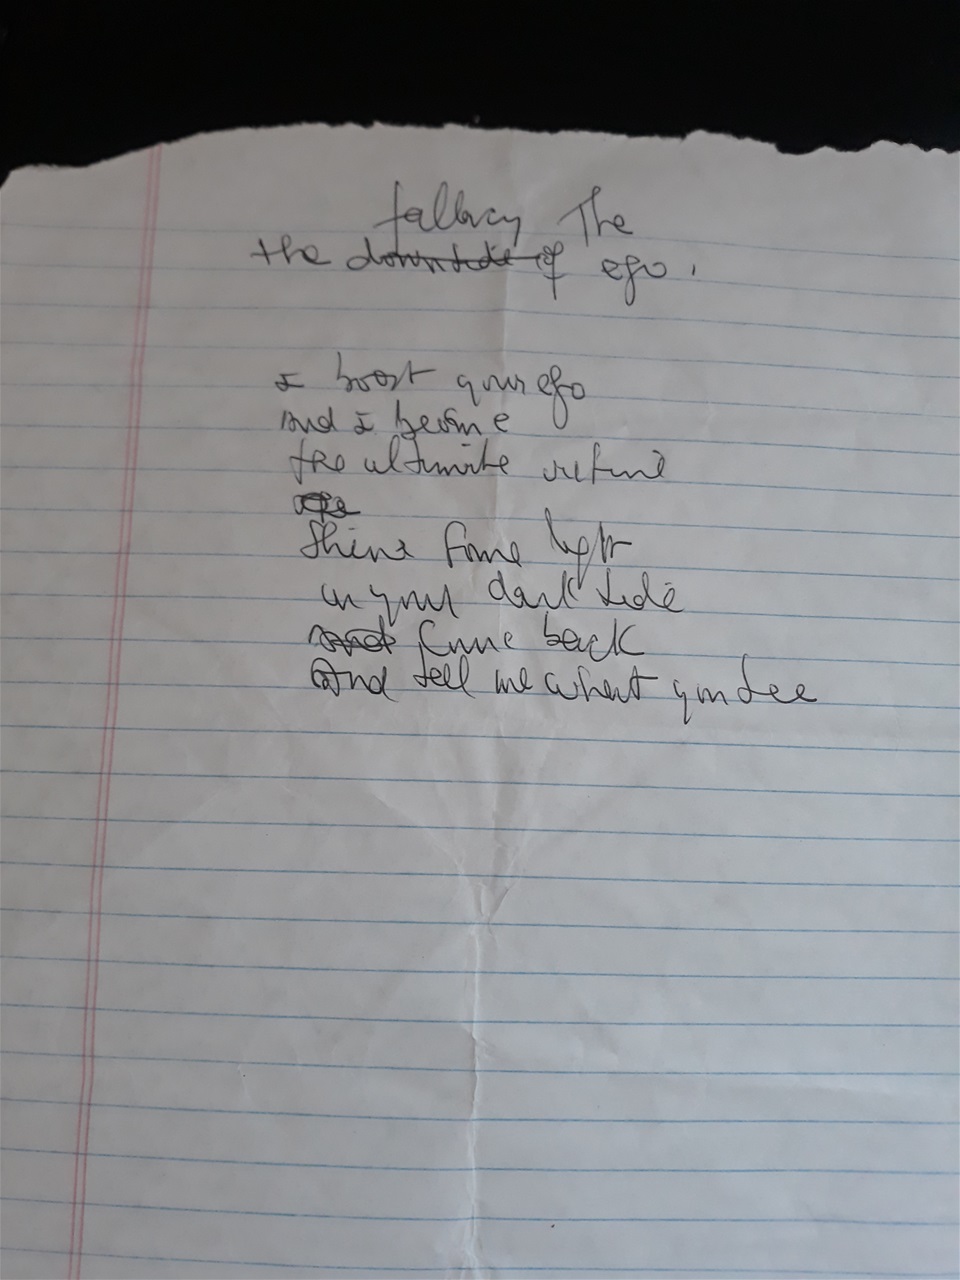 fallacy The
the downside of ego.
I boost your ego
and I become
the ultimate
Shine some light
in your dark side
and come back
And tell me what you see